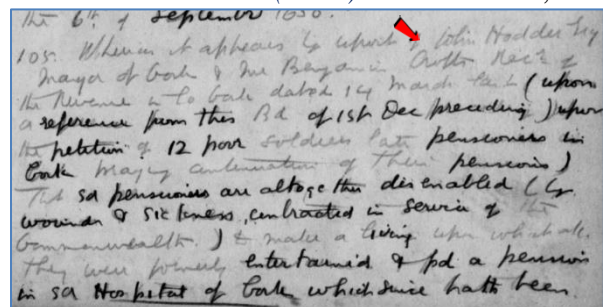 the 6th of September 1656.
105. Whereas it appears by report of John Hodder Esq
Mayor of Cork & Mr Benjamin Crofts Recr of
the Revenue in Co Cork dated 14 March last (upon
a reference from this Bd of 1st Dec preceding) upon
the petition of 12 poor soldiers late pensioners in
Cork praying continuation of their pensions)
That sd pensioners are altogether disenabled (by
wounds & sickness, contracted in service of the
Commonwealth.) to make a living upon which all.
They were formerly entertained & pd a pension
in sd Hospital of Cork which since hath been